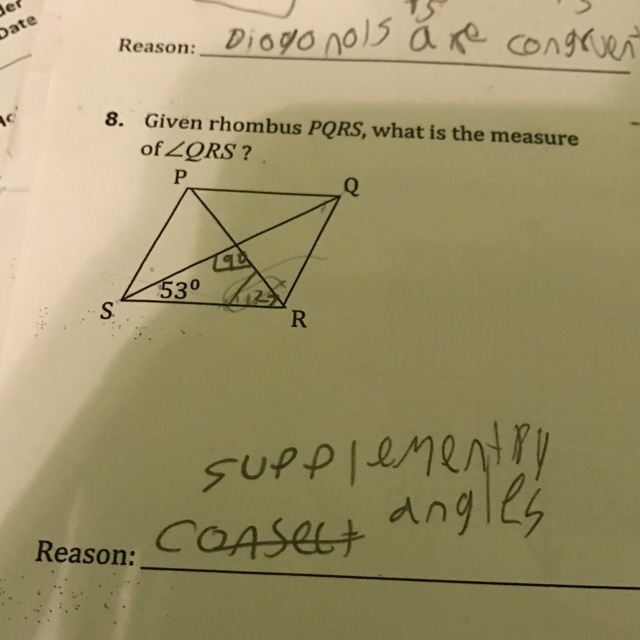 Date
Reason: Diagonals are congruent
8. Given rhombus PQRS, what is the measure
of ∠QRS ?
P
Q
90
53°
127
S
R
supplementry
angles
Reason: consect